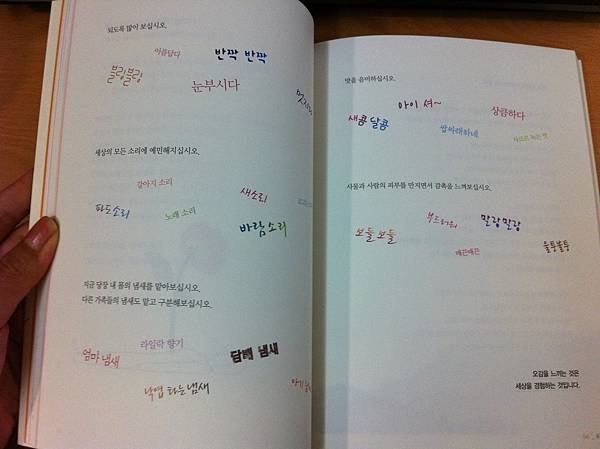 되도록 많이 보십시오.
아름답다
반짝 반짝
블링블링
눈부시다
세상의 모든 소리에 예민해지십시오.
강아지 소리
새소리
파도소리
노래 소리
바람소리
지금 당장 내 몸의 냄새를 맡아보십시오.
다른 가족들의 냄새도 맡고 구분해보십시오.
엄마 냄새
라일락 향기
담배 냄새
낙엽 타는 냄새
맛을 음미하십시오.
아이 셔~
상큼하다
새콤 달콤
쌉싸래하네
사물과 사람의 피부를 만지면서 감촉을 느껴보십시오.
부드러워
말랑말랑
보들보들
매끈매끈
울퉁불퉁
오감을 느끼는 것은
세상을 경험하는 것입니다.